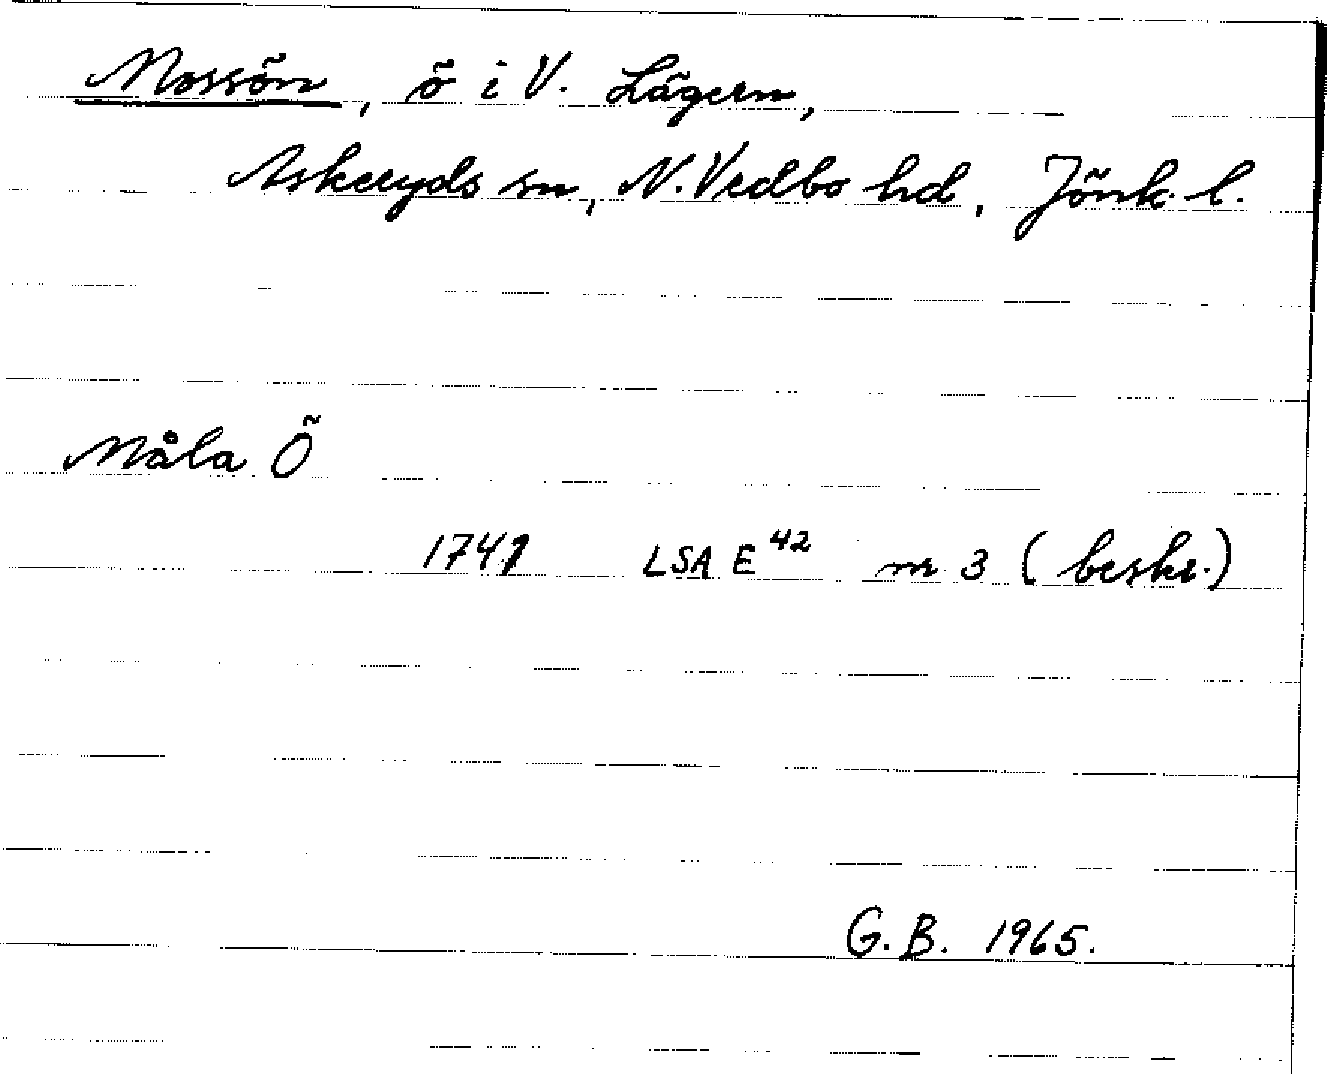 Mossön, ö i V. Lägern,
Askeryds sn, N. Vedbo hd, Jönk. l.
Måla Ö
1741 LSA E 42 nr 3 (beskr.)
G.B. 1965.